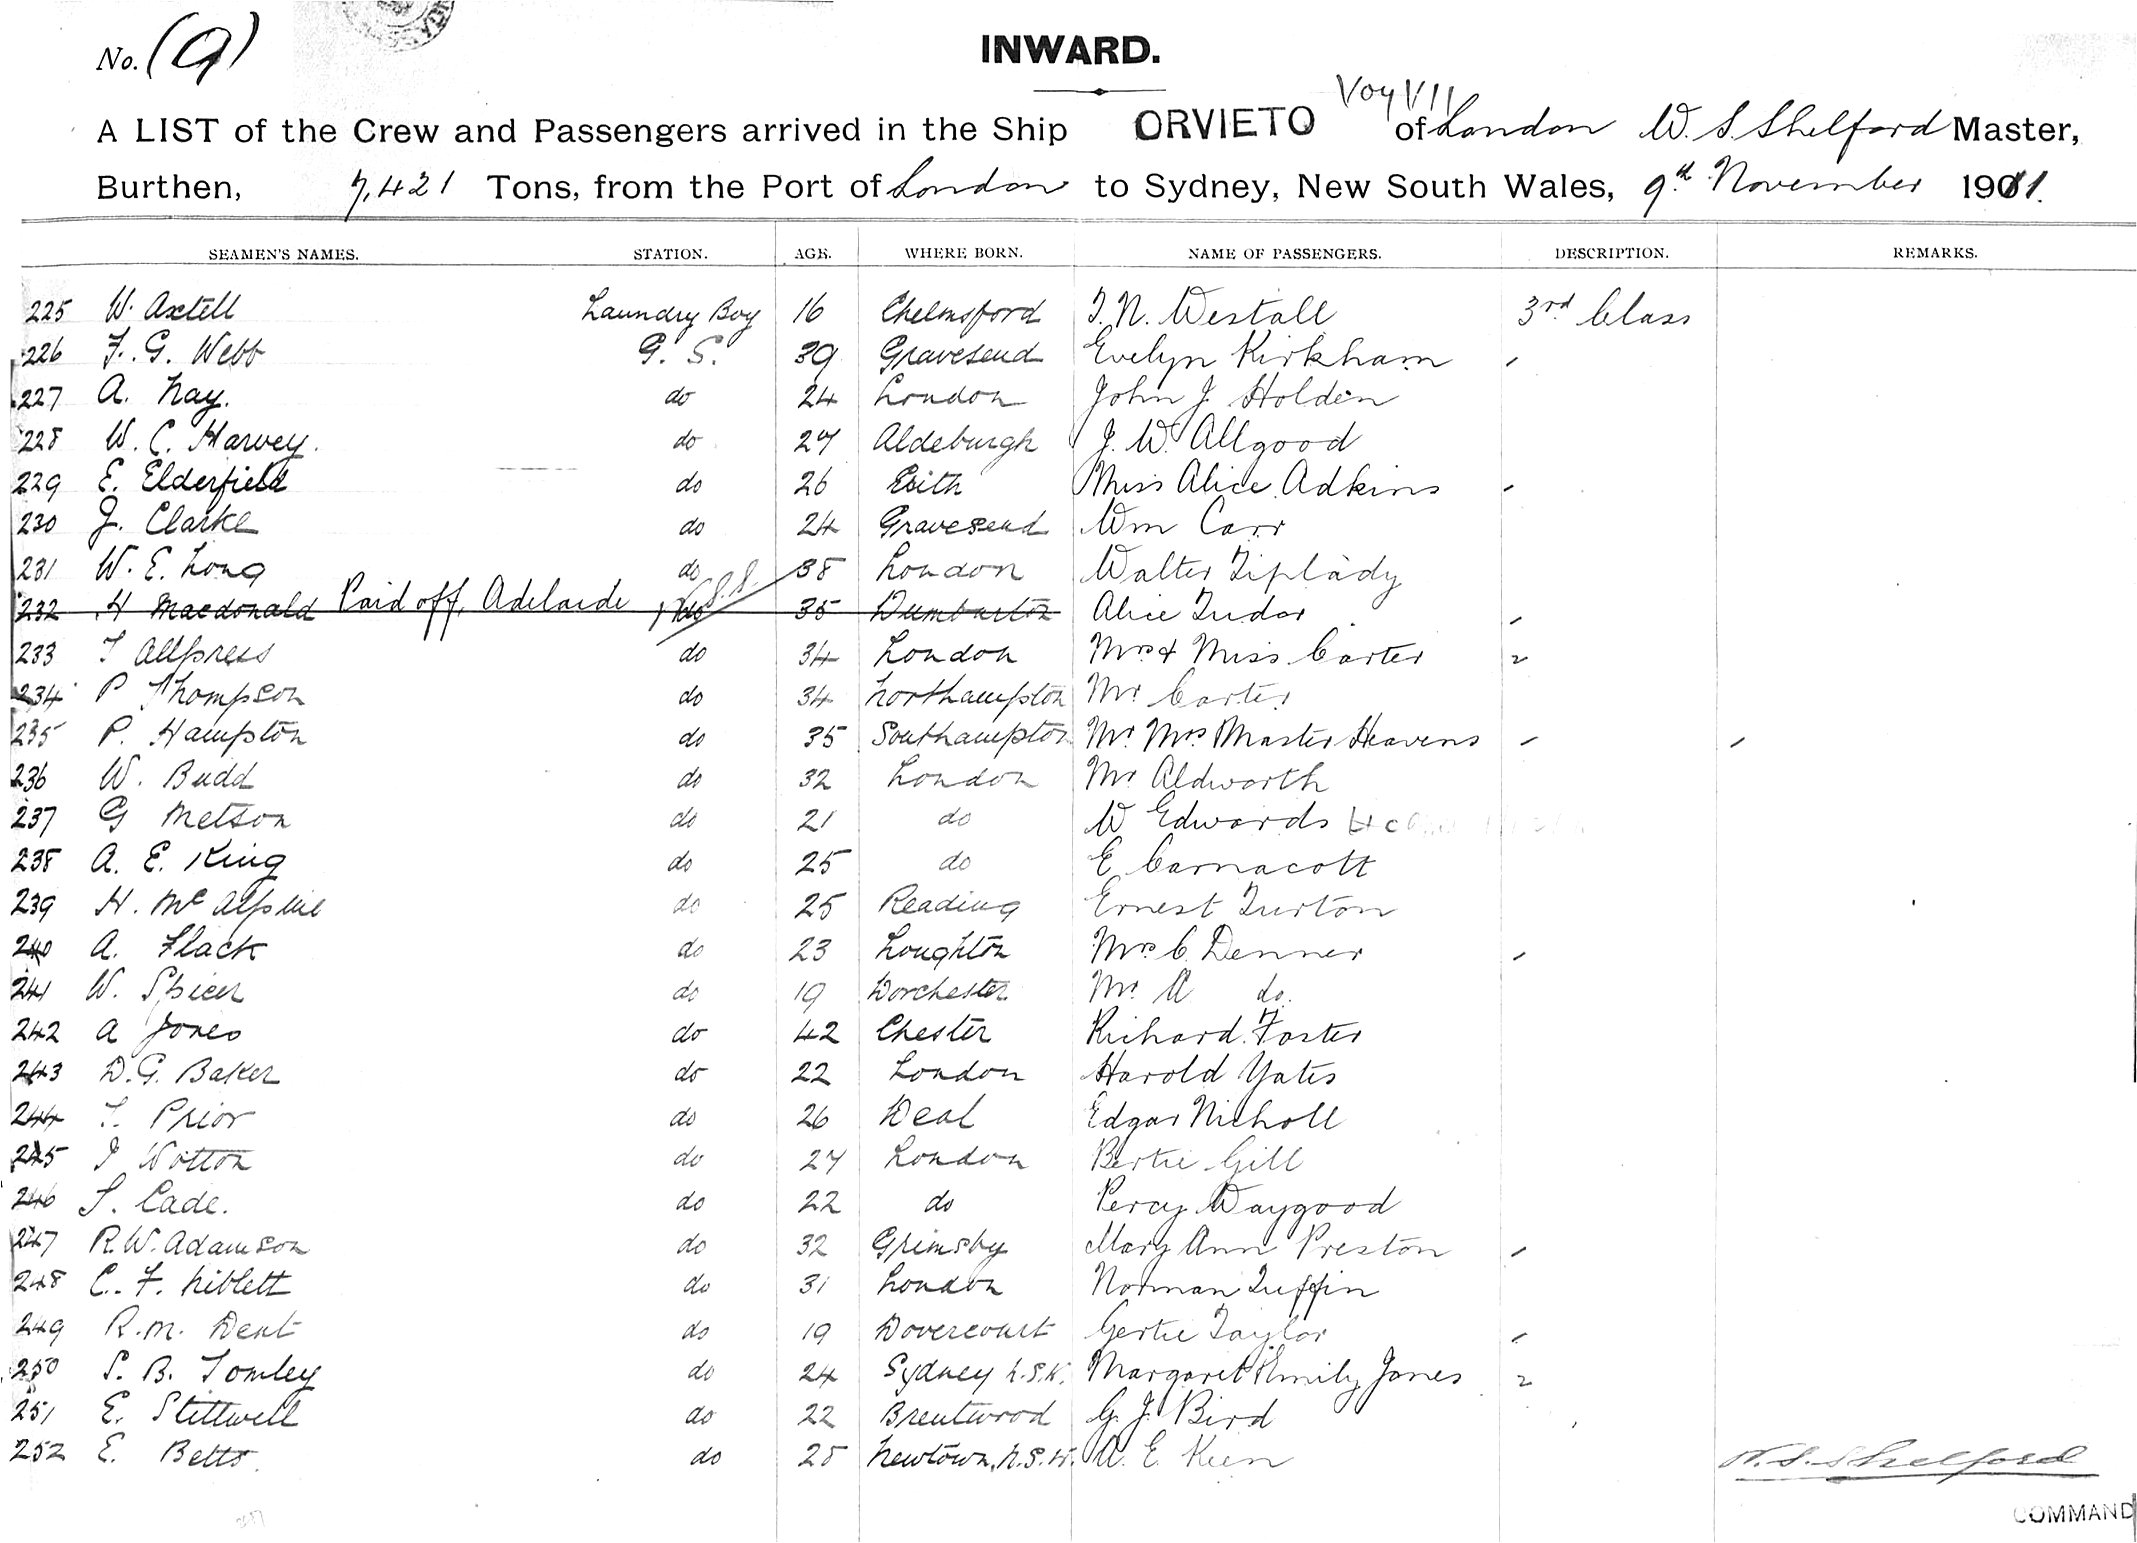 No. (9)
INWARD.
Voy VII
A LIST of the Crew and Passengers arrived in the Ship ORVIETO of London W. S. Shelford Master,
Burthen, 7,421 Tons, from the Port of London to Sydney, New South Wales, 9th November 1911.
SEAMEN'S NAMES. STATION. AGE. WHERE BORN. NAME OF PASSENGERS. DESCRIPTION. REMARKS.
225 W. Axtell Laundry Boy 16 Chelmsford T. N. Westall 3rd Class
226 F. G. Webb G. S. 39 Gravesend Evelyn Kirkham
227 A. Nay. do 24 London John J. Holden
228 W. C. Harvey. do 27 Aldeburgh J. W. Allgood
229 E. Elderfield do 26 Miss Alice Adkins
230 J. Clarke do 24 Gravesend Wm Carr
231 W. E. Long do 38 London Walter Tiplady
232 H Macdonald Paid off, Adelaide do 35 Dumbarton Alice Tudor
233 T Allpress do 34 London Mrs & Miss Carter
234 P Thompson do 34 Northampton Mr Carter
235 P. Hampton do 35 Southampton Mr Mrs Master Heavens
236 W. Budd do 32 London Mr Aldworth
237 G Metson do 21 do W Edwards
238 A. E. King do 25 do E Carnacott
239 H. McAlpine do 25 Reading Ernest Turton
240 A. Flack do 23 Loughton Mrs C. Denner
241 W. Spicer do 19 Dorchester Mr A do.
242 A Jones do 42 Chester Richard Foster
243 D. G. Baker do 22 London Harold Yates
244 T. Prior do 26 Deal Edgar Nicholl
245 J Wotton do 27 London Bertie Gill
246 S. Cade. do 22 do Percy Waygood
247 R. W. Adamson do 32 Grimsby Mary Ann Preston
248 C. F. Niblett do 31 London Norman Tuffin
249 R. M. Dent do 19 Dovercourt Gertie Taylor
250 S. B. Tomley do 24 Sydney N.S.W. Margaret Emily Jones
251 E. Stillwell do 22 Brentwood G. J. Bird
252 E. Betts. do 25 Newtown, N.S.W. A. E. Keen
W. S. Shelford
COMMAND